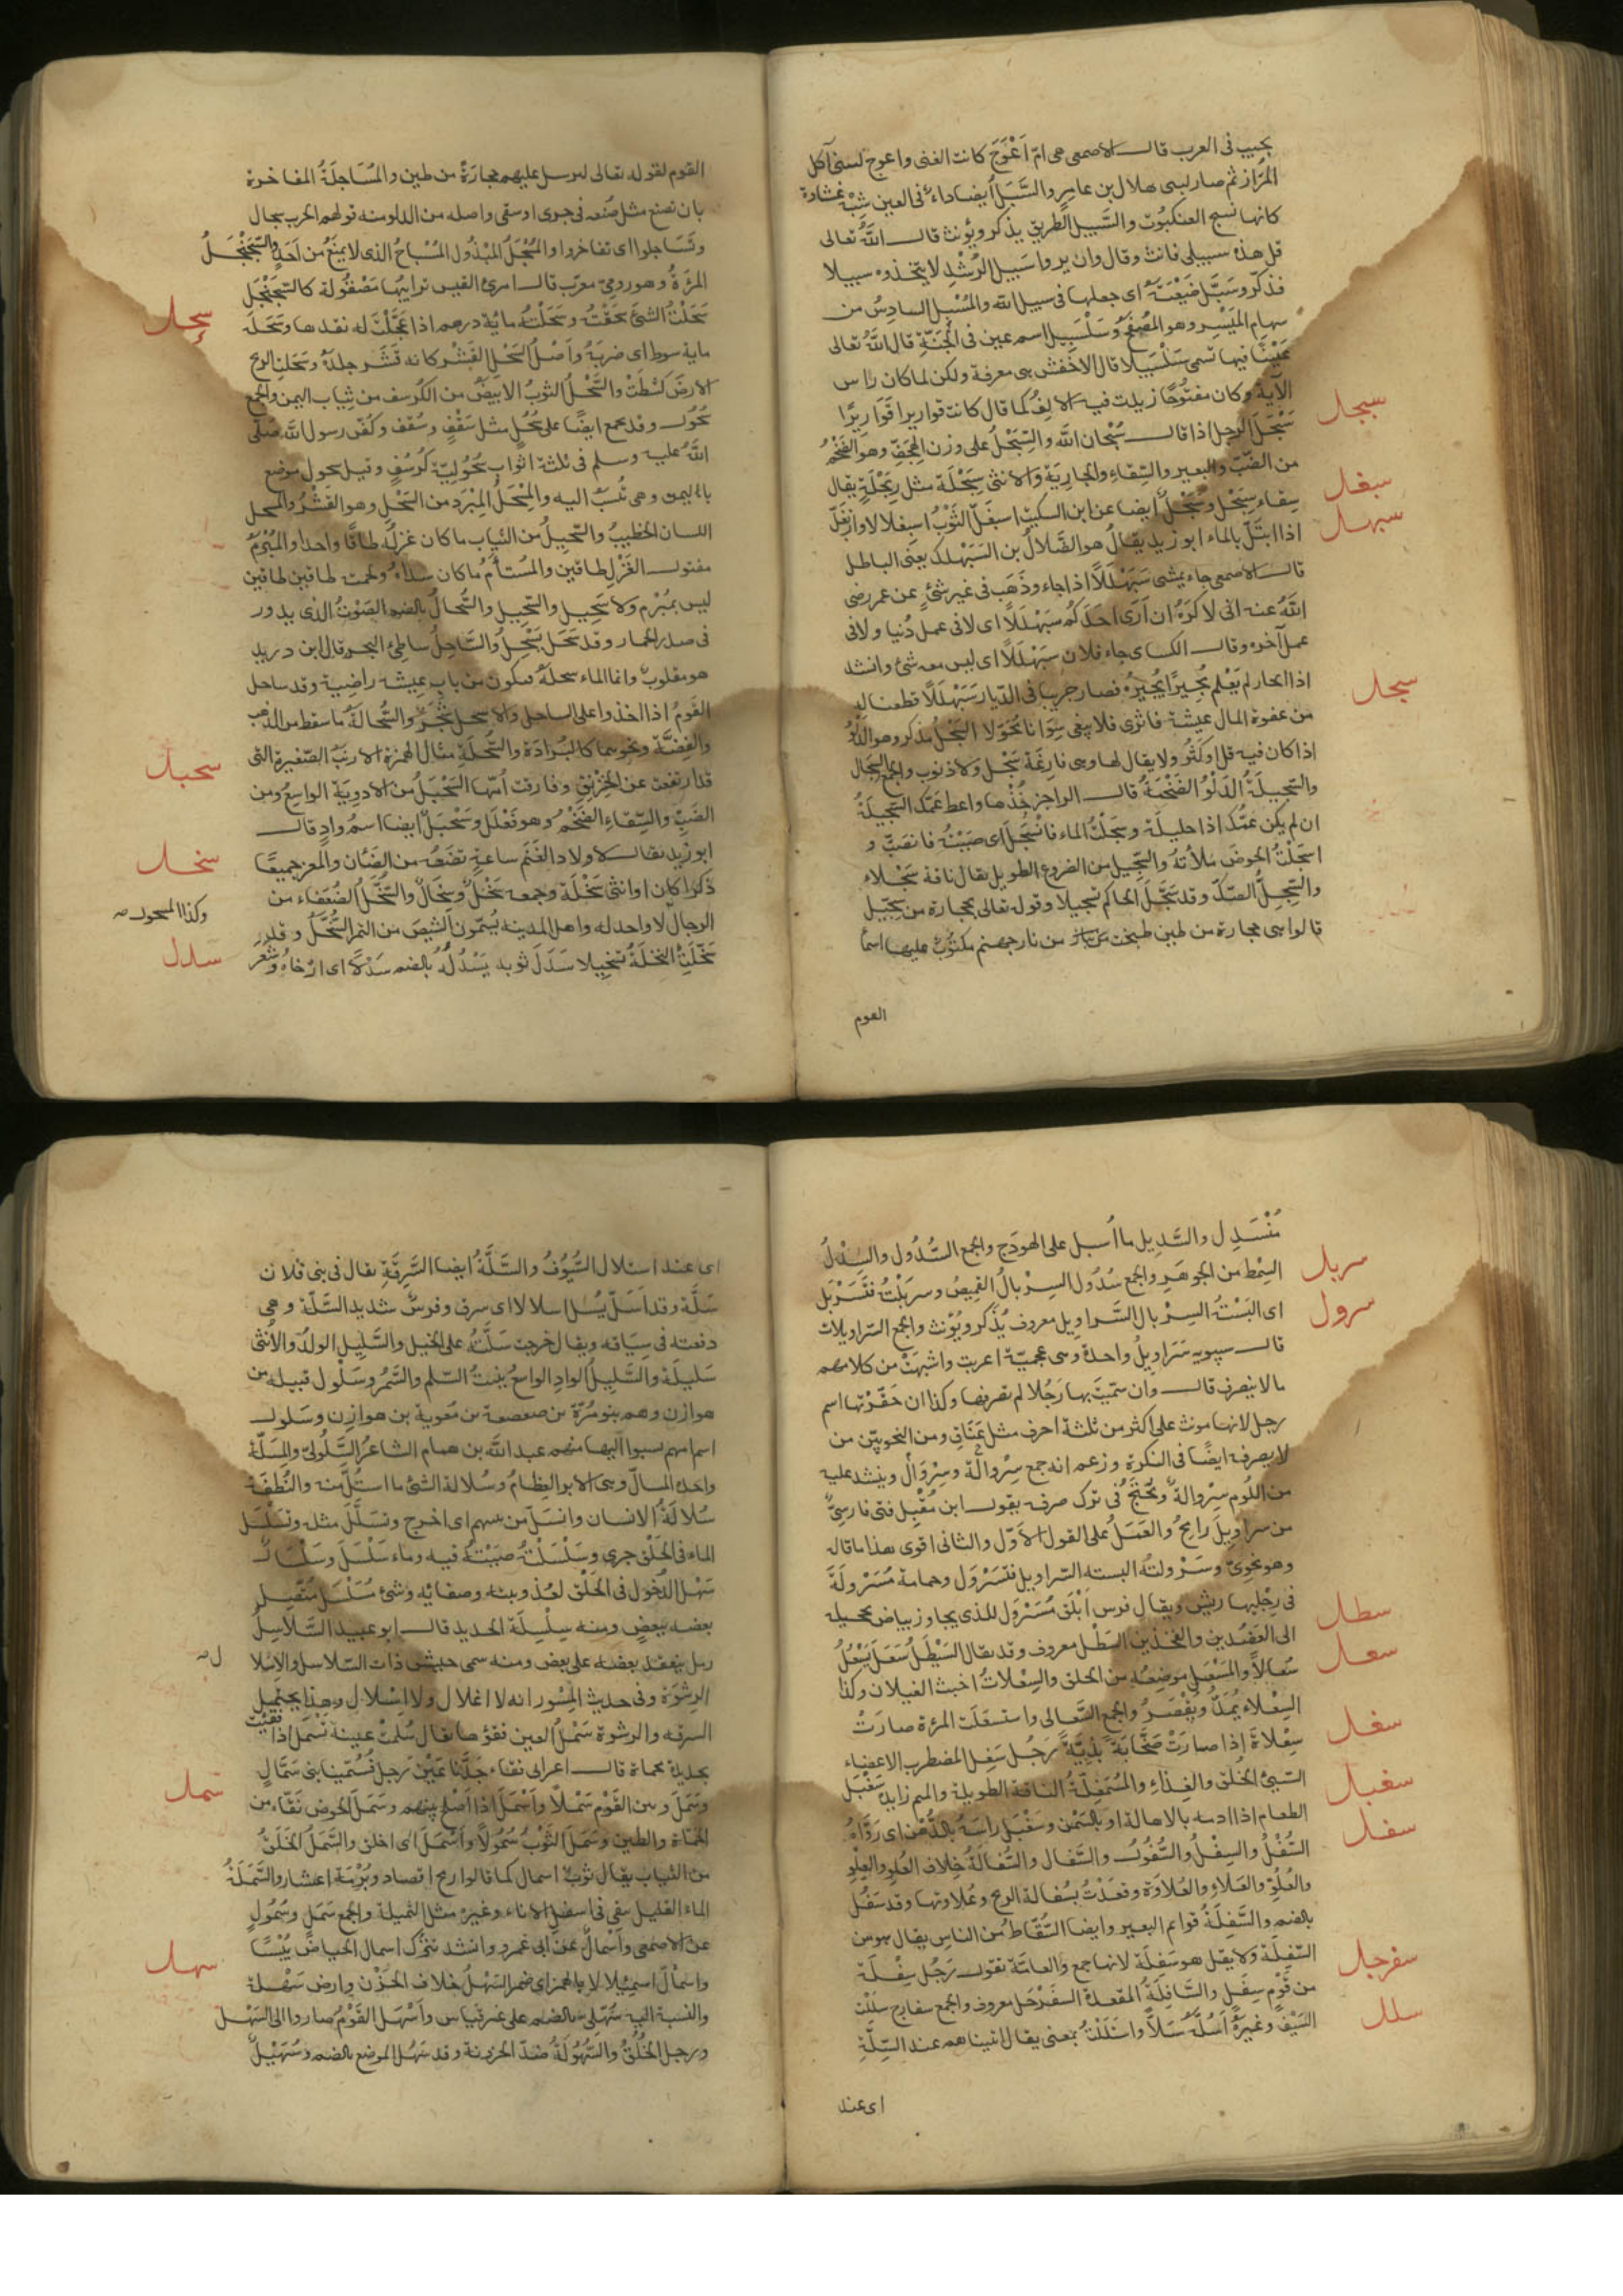 بجيب فى العرب قال الاصمعى هى امّ اَعْوَجَ كانت الغنى واعوج لسنى آكل
المُرَارثم صار لبنى هلال بن عامِرٍ والسَّبَلُ ايضا داءٌ فى العين شِبْهُ غشاوة
كانها نسج العنكبُوت والسَّبيل الطريق يذكر ويؤنث قال اللّٰهُ تعالى
قل هذه سبيلى فانث وقال وان يروا سَبيل الرُّشْدِ لا يتخذوه سبيلا
فذكّر وسَبَّل ضَيْعَتَهُ اى جعلها فى سبيل اللّٰه والمُسْبِل السادِسُ من
سهام المَيْسِر وهو المُصْفَحُ وسَلْسَبِيل اسم عين فى الجَنَّةِ قال اللّٰهُ تعالى
عَيْنًا فيها تسمى سَلْسَبيلا قال الاخفش هى معرفة ولكن لما كان راس
الآية وكان مفتوُحًا زيدت فيه الالِفُ كما قال كانت قوارير ا قَوَارِيرًا
سبحل
سَبْحَلَ الرجل اذا قال سُبْحان اللّٰه والسِّبَحْلُ على وزن الهِجَفِّ وهو الضَّخْمُ
من الضَّبّ والبعير والسِّقاءِ والجارِيَة والانثى سِبَحْلَة مثل رِبَحْلَةٍ يقال
سبغل
سِقاء سِبَحْل وسَبَحْلَلٌ ايضا عن ابن السكيت اسبغلّ الثَّوْبُ اسبغلالا وازبَغَلّ
سبهل
اذا ابتَلّ بالماء ابو زيد يقال هو الضَّلالُ بن السَبَهْلَلِ يعنى الباطل
قال الاصمعى جاء يمشى سَبَهْلَلًا اذا جاء وذَهَب فى غير شئٍ عن عمر رضى
اللّٰهُ عنه انى لاكرَهُ ان اَرَى احَدَكُم سَبَهْلَلًا اى لا فى عمل دُنيا ولا فى
عمل آخره وقال الكساى جاء فلان سَبَهْلَلًا اى ليس معه شئ وانشد
اذا الجار لم يَعْلم مُجِيرًا يُجِيرُهُ فصار حريبا فى الدّيار سَبَهْلَلًا قطعنا له
سجل
من عفوة المال عيشة فاثرى فلا يبغى سِوَانا مُحَوَّلا السَّجْلُ مذكر وهو الدَّلْوُ
اذا كان فيه قل او كثُر ولا يقال لها وهى فارِغَة سَجْل ولا ذنوب والجمع السجال
والسَّجِيلَةُ الدَّلْوُ الضَّخْمَةُ قال الراجز خُذْها واعطِ عَمّكَ السَّجِيلَةْ
ان لم يكن عمُّك اذا حليلَة وسَجَلْتُ الماء فانْسَجَل اى صَبَبْتُهُ فانصَبّ و
اسجَلْتُ الحوضَ مَلأتُهُ والسَّجِيل من الضروع الطويل يقال ناقة سَجْلاء
والسِّجِلُّ الصَّكّ وقد سَجَّلَ الحاكم تسجيلا وقوله تعالى بحجارة من سِجّيلٍ
قالوا هى حجارة من طين طبخت من نار جهنم مكتُوبٌ عليها اسمأ
القوم
القوم لقوله تعالى لنرسل عليهم حجارَةً من طين والمُسَاجَلَةُ المفاخرة
بان تصنع مثل صُنعه فى جرى او سقى واصله من الدلو منه قولهم الحرب سجال
وتَسَاجلوا اى تفاخروا والمُسْجَلُ المَبْذُول المُبَاحُ الذى لا يمنَعُ من اَحَدٍ والسَّجَنْجَلُ
المرءةُ وهو رومىّ معرّب قال امرئُ القيس ترايُبها مَصْقُولة كالسَّجَنْجَل
سحل
سَحَلْتُ الشئَ سَحَقْتُ وسَحَلْتُهُ مائة درهم اذا عَجَّلْتَ له نقدها وسَحَلَهُ
ماية سوط اى ضربَهُ واَصْلُ السَّحْل القَشْر كانه قَشَر جلدَهُ وسَحَلَتِ الريح
الارضَ كَشَطَتْ والسَّحْلُ الثوبُ الابيضُ من الكُرسف من ثِياب اليمن والجمع
سُحُول وقد يجمع ايضًا على سُحُلٍ مثل سَقْفٍ وسُقُف وكُفّن رسول اللّٰه صَلّى
اللّٰهُ عليه وسلم فى ثلثة اثواب سحُوليّةٍ كُرسُفٍ وقيل سحول موضع
باليمن وهى تُنسَبُ اليه والمِسْحَلُ المِبْرَد من السَّحْلِ وهو القَشْرُ والمسحل
اللسان الخطيبُ والسَّحِيلُ من الثياب ما كان غزلُه طاقًا واحدا والمُبْرَمُ
مفتول الغَزْل طاقين والمُستأم ما كان سَداهُ ولحمته طاقين طاقين
ليس بمُبْرَم ولا سَحِيل والسَّحيل والسُّحالُ بالضم الصَوتُ الذى يدور
فى صدر الحمار وقد سَحَل يَسْحِلُ والسَّاحِلُ شاطئ البحر قال ابن دريد
هو مقلوبٌ وانما الماء سحلَهُ فيكون من باب عيشة راضية وقد ساحل
القومُ اذا اخذوا على الساحل والاسحل شَجَرٌ والسُّحالَةُ ما سقط من الذهب
والفِضَّة ونحوهما كالبُرَادَة والسُّحَلَة مثال الهُمَزة الارنَبُ الصّغيرةُ التى
سحبل
قد ارتفعت عن الخِرْنِق وفارقت اُمَّها السَّحْبَلُ من الاودِيَةِ الواسِعُ ومن
الضَّبِّ والسِّقاءِ الضَّخْمُ وهو فَعْلَلٌ وسَحْبَلٌ ايضا اسمُ وادٍ قال
سخل
ابو زيد يقال لاولاد الغَنَم ساعةَ تضَعُهُ من الضَّئان والمعز جميعًا
ذكرا كان او انثى سَخْلَة وجمعه سَخْلٌ وسِخالٌ والسُّخَّلُ الضُعَفاء من
وكذا المسحول صه
الرجال لا واحد له واهل المدينة يُسَمّون الشِيصَ من التمر السُّخَّلَ وقد
سدل
سَخَّلَتِ النخلَةُ تسخيلا سَدَلَ ثوبه يَسْدُلُهُ بالضم سَدْلًا اى ارْخاهُ وشَعْر
مُنْسَدِل والسَّدِيل ما اُسبل على الهودَج والجمع السُّدُول والسِّدْلُ
سربل
السِّمْط من الجوهَرِ والجمع سُدُول السِربالُ القميصُ وسربَلْتُ فتَسَرْبَل
سرول
اى البَسْتُهُ السِرْبال السَّراوِيل معروف يُذَكّر ويُؤنث والجمع السّراويلات
قال سيبويه سَرَاويلُ واحدة وهى عجميّة اعربت واشبهَتْ من كلامهم
مالا ينصرف قال وان سمّيتَ بها رَجُلا لم تصرفها وكذا ان حَقّرْتها اسم
رجل لانها مونث على اكثر من ثلثة احرف مثل عَنَاقٍ ومن النحويّين من
لا يصرفه ايضًا فى النكرة وزعم انه جمع سِرْوالٍ وسِرْوالةٍ وينشد عليه
من اللُوم سِرْوالةٌ ويُحْتَجُّ فى ترك صرفه بقول ابن مُقْبِل فتى فارسِىٌّ
من سراويل رامِحُ والعَمَلُ على القول الاَوّل والثانى اقوى هذا ما قاله
وهو نحوىّ وسَرْولتُهُ البسته السراويل فتَسَرْوَل وحمامة مُسَرْوَلَةٌ
فى رِجْلَيها ريش ويقال فرس اَبْلَقُ مُسَرْوَل للذى يجاوز بياض تحجيله
سطل
الى العَضُدين والفخذين السَّطْل معروف وقد يقال السَّيْطَل سَعَلَ يَسْعُلُ
سعل
سُعالًا والمَسْعَل موضِعُهُ من الحلق والسِعْلاتُ اخبث الغيلان وكذا
السِعْلاءُ يُمَدّ ويُقْصَرُ والجمع السَّعالى واستَسعَلت المرءة صارَتْ
سغل
سِعْلاةً اذا صارَتْ صَخَّابَةً بَذِيَّةً رَجُل سَغِل المضطرب الاعضاء
سغبل
السّيئُ الخلق والغِذاءِ والمُسْمَغِلّةُ الناقة الطويلة والميم زايد سَغْبَل
الطعام اذا ادمه بالاهالة او بالسَّمْن وسَغْبَل راسَهُ بالدُّهْن اى رَوّاهُ
سفل
السُّفْلُ والسِفْلُ والسُّفُولُ والسَّفال والسُّفالَةُ خِلاف العُلو والعِلْو
والعُلُوّ والعَلاءِ والعُلاوَة وقعَدْتُ بسُفالة الريح وعُلاوتها وقد سَفُل
بالضم والسَّفِلَةُ قوائم البعير وايضا السُّقّاطُ من الناس يقال هو من
سفرجل
السَّفِلَة ولا يقل هو سَفِلَة لانها جمع والعامّة تقول رَجُل سِفْلَة
من قَوْمٍ سِفَلٍ والسَّافِلَةُ المقعدة السفَرْجَل معروف والجمع سفارج سلَلْت
سلل
السَّيْفَ وغيرَهُ اَسُلُّهُ سَلًّا واستَلَلْتُ بمعنى يقال اتيناهم عند السِّلَّةِ
اى عند
اى عند استلال السُّيُوف والسَّلَّةُ ايضا السَّرِقَة يقال فى بنى فلان
سَلّة وقد اَسَلّ يُسِل اسلالا اى سرق وفرسٌ شديد السَّلّة وهى
دفعته فى سِبَاقه ويقال خرجت سَلَّتُهُ على الخيل والسَّلِيل الولَدُ والاُنثى
سَليلة والسَّليلُ الوادِ الواسعُ يُنبتُ السّلم والسَّمُر وسَلول قبيلة من
هوازن وهم بنو مُرّة بن صعصعة بن معوية بن هوازن وسَلول
اسم امهم نسبوا اليها منهم عبد اللّٰه بن همام الشاعرُ السَّلُولىّ والمِسَلّة
واحدة المسالّ وهى الابر العِظامُ وسُلالة الشئ ما استُلّ منه والنُّطفَة
سُلالَةُ الانسان وانسَلّ من بينهم اى اخرج وتسَلَّل مثله وتسَلْسَل
الماء فى الحَلْق جرى وسَلْسَلتُهُ صَبَبْتُهُ فيه وماء سَلْسَلَ وسَلْسال
سَهْل الدُّخول فى الحَلْق لعُذوبته وصفائه وشئ مُسَلْسَل مُتّصِل
بعضه ببعضٍ ومنه سِلْسِلَة الحديد قال ابو عبيد السَّلاسِلُ
رمل ينعقد بعضه على بعض ومنه سمى جيش ذات السّلاسل والاسلا
ل صه
الرِشوَة وفى حديث المِسْوَر انه لا اغلال ولا اسْلال وهذا يحتمل
السرقه والرشوة سَمْلُ العين فقؤها يقال سُمِلَتْ عينه تُسْمَل اذا فُقِئَتْ
بحديدة محماة قال اعرابى فقاء جَدُّنا عَيْنَ رَجل فسُمّينا بنى سَمَّالٍ
سمل
وسَمَلَ بين القَوْم سَمْلاً واَسْمَلَ اذا اَصلح بينهم وسَمَلَ الحوض نَقّاه من
الحَمْأة والطين وسَمَل الثَوْبُ سُمُولًا واَسْمَلَ اى اخلق والسَّمَلُ الخَلَقُ
من الثياب يقال ثوبٌ اسمال كما قالوا رمح اقصاد وبُرْمَة اعشار والسَّمَلَةُ
الماء القليل يبقى فى اسفل الاناء وغيره مثل الثميلة والجمع سَمَل وسُمُولٍ
عن الاصمعى واسْمالٌ عن ابى عَمْرو وانشد تترُك اسمال الحِياض يُبَّسًا
سهل
واسْمأَلَّ اسمئلالا بالهمز اى ضمر السَّهْلُ خلاف الحَزْن وارض سَهْلة
والنسبة اليه سُهْلِىّ بالضم على غير قياس واَسْهل القَوْمُ صاروا الى السَّهْل
ورجل الخُلُقُ والسُّهُولَةُ ضدّ الحُزونة وقد سَهُل الموضع بالضم وسُهَيْلٌ